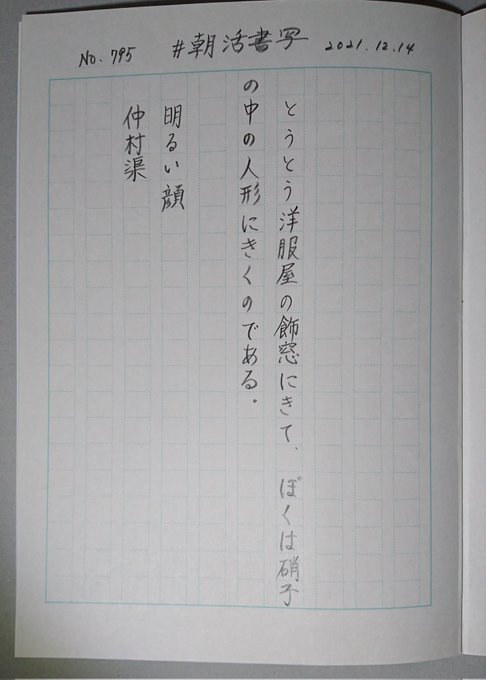 No. 795 #朝活書写 2021.12.14
とうとう洋服屋の飾窓にきて、ぼくは硝子
の中の人形にきくのである。
明るい顔
仲村渠